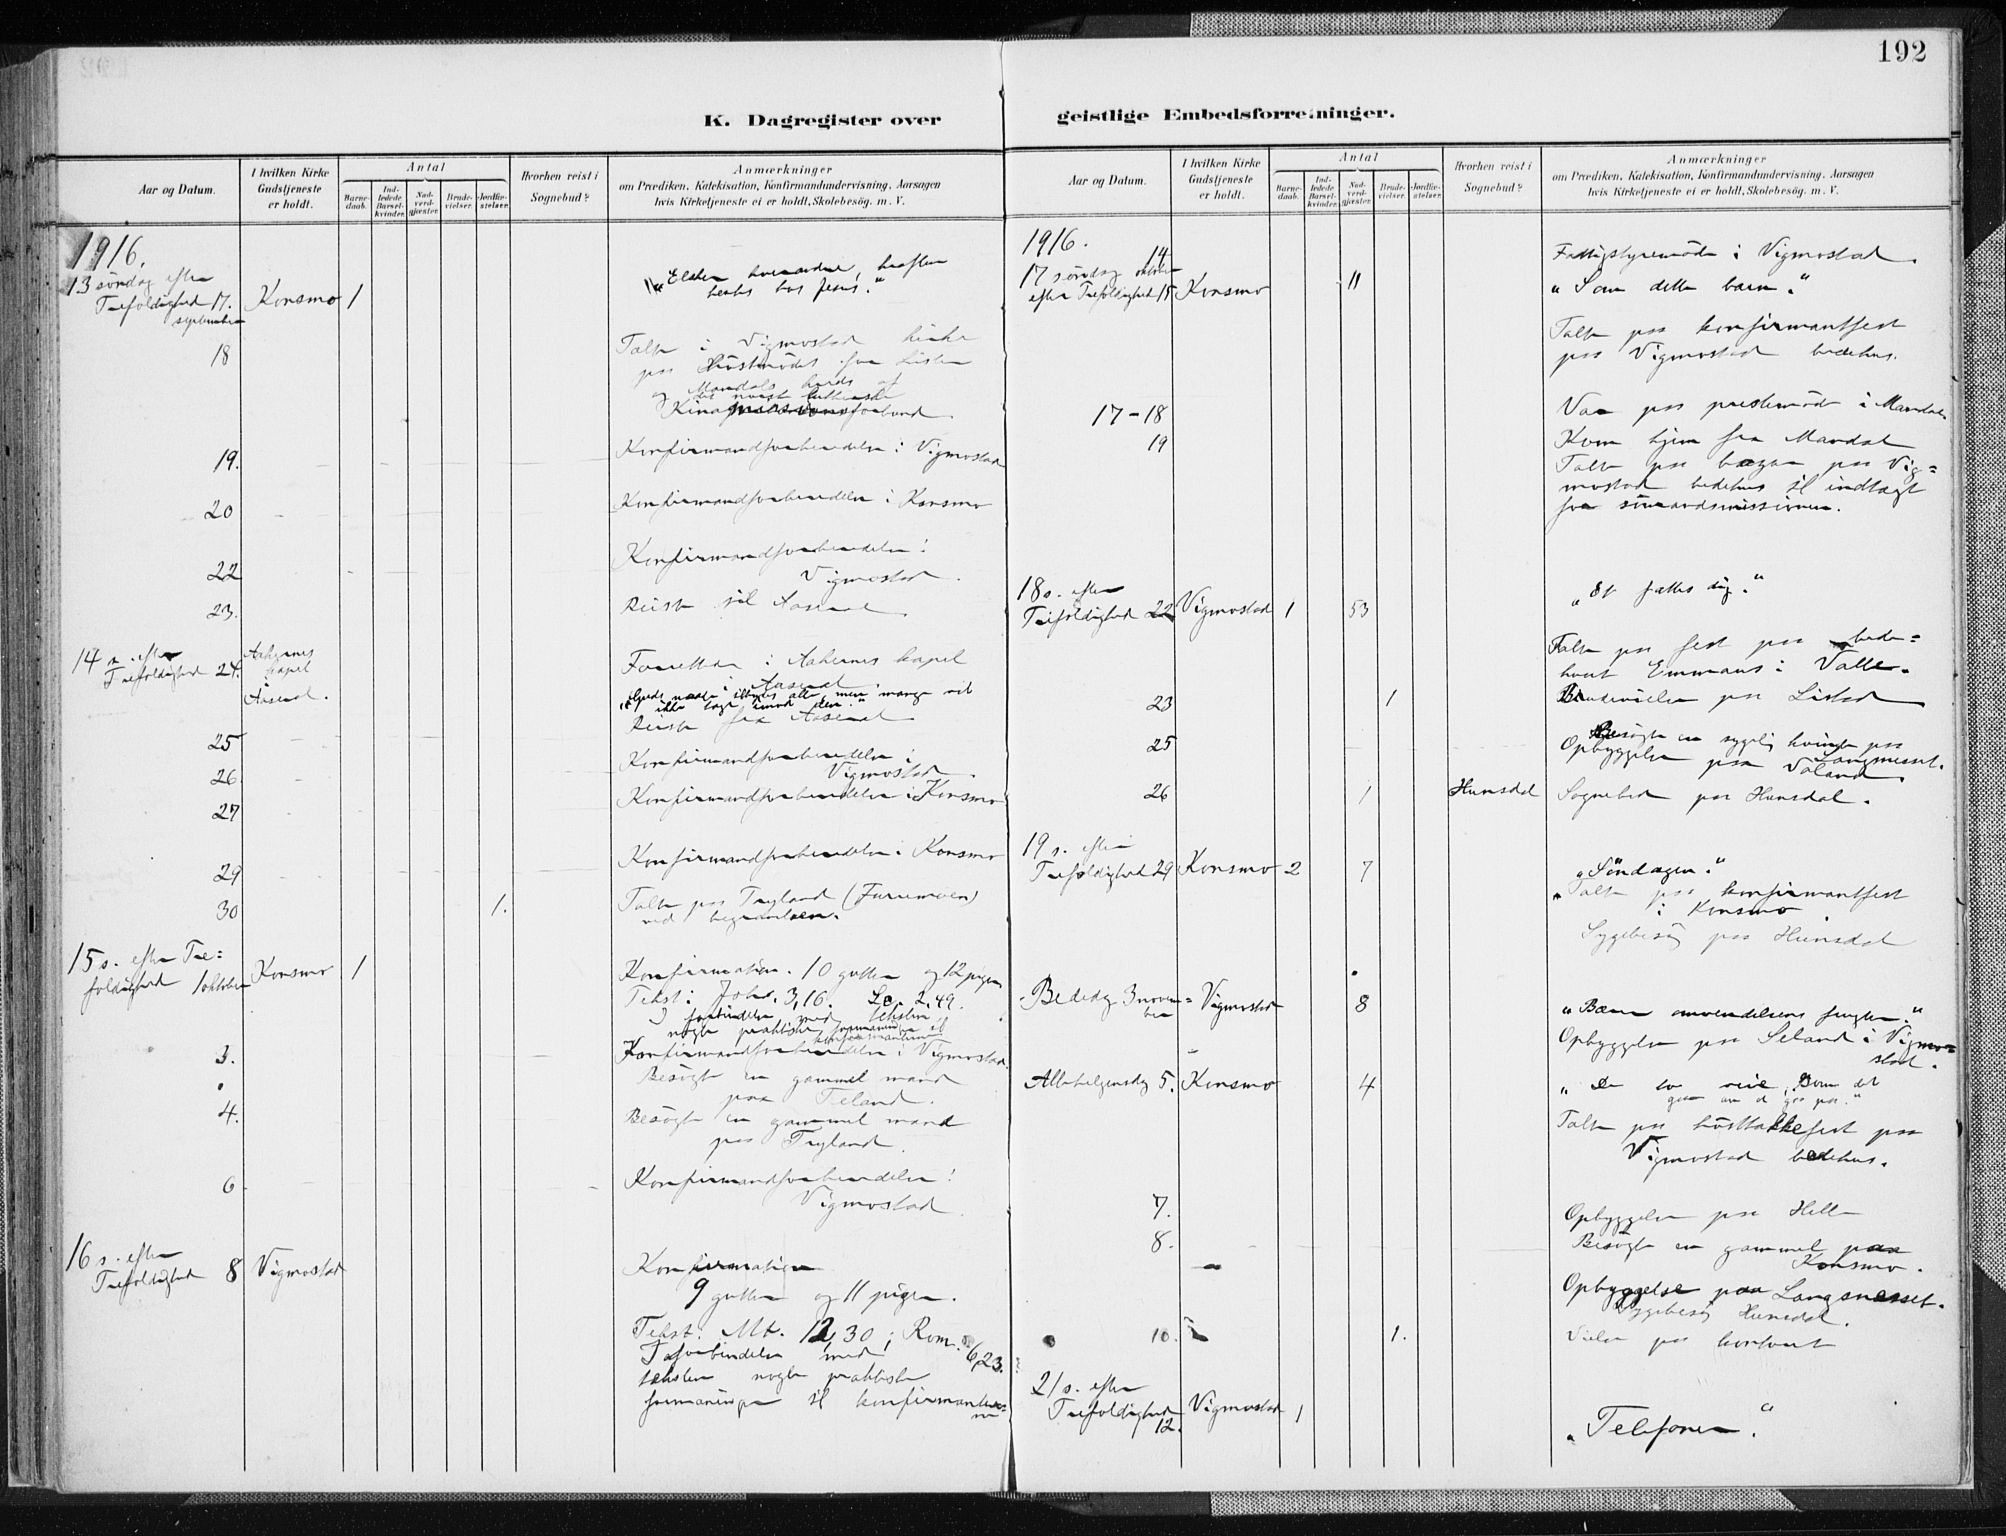 192
K. Dagregister over
Aar og Datum.
I hvilken Kirke
Gudstjeneste
er holdt.
Antal
Barne-
daab.
Ind-
ledede
Barsel-
kvinder.
Nad-
verd-
gjæster.
Brude-
vielser.
Jordfæ-
stelser.
Hvorhen reist i
Sognebud?
Anmærkninger
om Prædiken, Katekisation, Konfirmandundervisning, Aarsagen
hvis Kirketjeneste ei er holdt, Skolebesög. m. V.
1916.
13 söndag efter
Trefoldighed 17.
september
Konsmo 1
"Elsker hverandre, kraften
hertes hos Jesus."
18
Talte i Vigmostad kirke
paa Höstmödet for Lister
og Mandals kreds af
det norske lutherske
Kinamissionsforbund.
19.
Konfirmandforberedelse i Vigmostad
20
Konfirmandforberedelse i Konsmo
22
Konfirmandforberedelse i
Vigmostad.
23.
Reiste til Aaseral.
14 s. efter
Trefoldighed 24.
Aaknes
kapel
i
Aaseral.
Forrettede i Aaknes kapel
i Aaseral
"Guds naade tilbydes alle, men mange vil
ikke tage imod den."
Reiste fra Aaseral
25
26.
Konfirmandforberedelse i
Vigmostad.
27
Konfirmandforberedelse i Konsmo
29
Konfirmandforberedelse i Konsmo
30 1.
Talte paa Tryland (Furremoen)
ved begravelsen.
15 s. efter Tre=
foldighed 1 oktober
Konsmo 1
Konfirmation. 10 gutter og 12 piger.
Tekst: Joh. 3,16. Lc. 2,49.
I forbindelse med teksten
nogle praktiske formaninger til
konfirmanterne
3.
Konfirmandforberedelse i Vigmostad.
Besögte en gammel mand
paa Teland.
4.
Besögte en gammel mand
paa Tryland.
6
Konfirmandforberedelse i
Vigmostad
16 s. efter
Trefoldighed 8 Vigmostad
Konfirmation
9 gutter og 11 piger.
Tekst: Mt. 12,30; Rom. 6,23.
I forbindelse med
teksten nogle praktiske
formaninger til konfirmanter=
ne
geistlige Embedsforretninger.
Aar og Datum.
I hvilken Kirke
Gudstjeneste
er holdt.
Antal
Barne-
daab.
Ind-
ledede
Barsel-
kvinder.
Nad-
verd-
gjæster.
Brude-
vielser.
Jordfæ-
stelser.
Hvorhen reist i
Sognebud?
Anmærkninger
om Prædiken, Katekisation, Konfirmandundervisning, Aarsagen
hvis Kirketjeneste ei er holdt, Skolebesög. m. V.
1916.
14
Fattigstyremöde i Vigmostad.
17 söndag oktober
efter Trefoldighed 15 Konsmo 11
"Som dette barn."
Talte paa konfirmantfest
paa Vigmostad bedehus.
17-18
Var paa prestemöde i Mandal.
19
Kom hjem fra Mandal
Talte paa bazar paa Vig=
mostad bedehus til indtægt
for sömandsmissionen.
18 s. efter
Trefoldighed 22 Vigmostad 1 53
"Et fattes dig."
Talte paa fest paa bede=
huset Emmaus i Valle.
23 1
Brudevielse paa Listad
25
Besögte en sygelig kvinde paa
Langnesset.
Opbyggelse paa Valand.
26 1 Hunsdal
Sognebud paa Hunsdal.
19 s. efter
Trefoldighed 29 Konsmo 2 7
"Söndagen."
Talte paa konfirmantfest
i Konsmo.
Sygebesög paa Hunsdal
Bededag 3 novem=
ber
Vigmostad 8
"Bær omvendelsens frugter."
Opbyggelse paa Seland i Vigmo=
stad.
Allehelgensdag 5. Konsmo 4
"De to veie, som det
Talte paa hösttakkefest paa
Vigmostad bedehus.
7.
Opbyggelse paa Helle
8.
Besögte en gammel paa
Konsmo.
Opbyggelse paa Langsnesset.
Sygebesög Hunsdal.
10. 1.
Vielse paa kontoret
21 s. efter
Trefoldighed
12.
Vigmostad 1
"Telefonen."